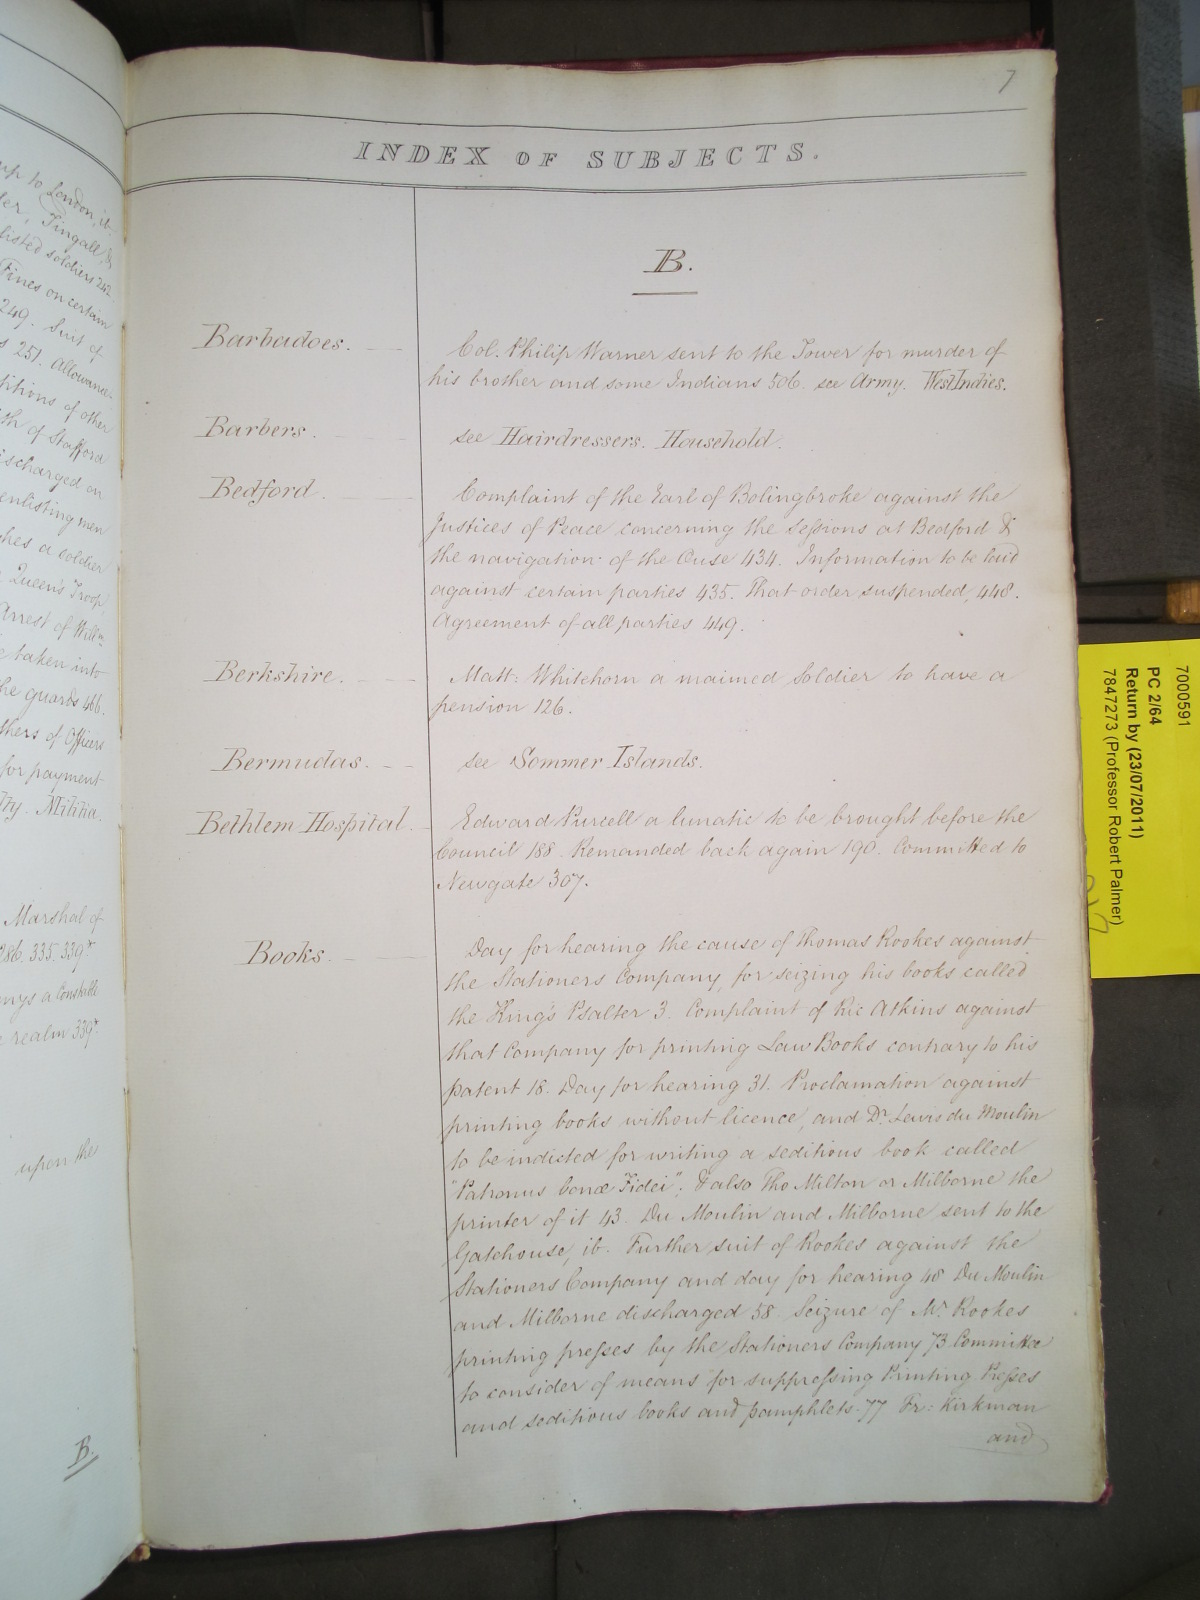 up to London, ib.
Tingall, &
listed soldiers 242.
Fines on certain
249. Suit of
s 251. Allowance
titions of other
th of Stafford
ischarged on
enlisting men
hes a soldier
Queen's Troop
Arrest of Willm.
e taken into
he guards 466.
thers of Officers
for payment
try. Militia.
Marshal of
286. 335. 339*
nys a Constable
realm 339*
upon the
B.
7
INDEX OF SUBJECTS.
B.
Barbadoes. Col. Philip Warner sent to the Tower for murder of
his brother and some Indians 506. see Army. West Indies.
Barbers. see Hairdressers. Household.
Bedford. Complaint of the Earl of Bolingbroke against the
Justices of Peace concerning the Sessions at Bedford &
the navigation of the Ouse 434. Information to be laid
against certain parties 435. That order suspended, 448.
Agreement of all parties 449.
Berkshire. Matt: Whitehorn a maimed Soldier to have a
pension 126.
Bermudas. see Sommer Islands.
Bethlem Hospital. Edward Purcell a lunatic to be brought before the
Council 188. Remanded back again 190. Committed to
Newgate 307.
Books. Day for hearing the cause of Thomas Rookes against
the Stationers Company, for seizing his books called
the King's Psalter 3. Complaint of Ric Atkins against
that Company for printing Law Books contrary to his
patent 18. Day for hearing 31. Proclamation against
printing books without licence, and Dr. Lewis du Moulin
to be indicted for writing a seditious book called
"Patronus bonæ Fidei"; & also Tho Milton or Milborne the
printer of it 43. Du Moulin and Milborne sent to the
Gatehouse, ib. Further suit of Rookes against the
Stationers Company and day for hearing 48 Du Moulin
and Milborne discharged 58. Seizure of Mr. Rookes
printing presses by the Stationers Company 73 Committee
to consider of means for suppressing Printing Presses
and seditious books and pamphlets. 77 Fr: Kirkman
and
7000591
PC 2/64
Return by (23/07/2011)
7847273 (Professor Robert Palmer)